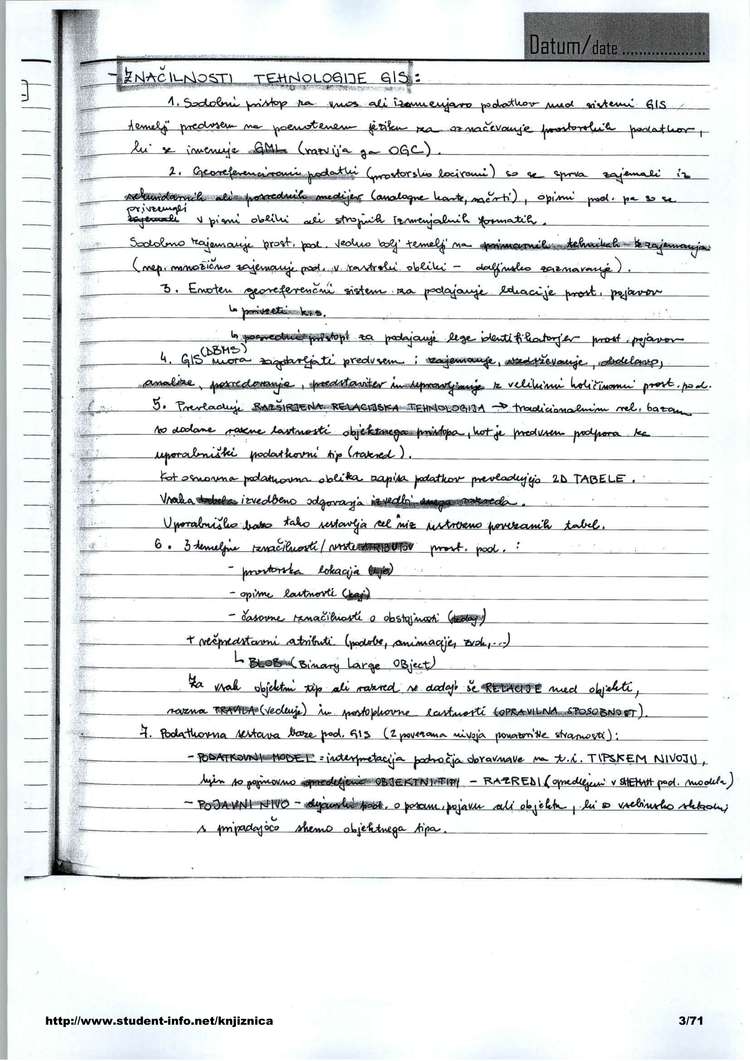 Datum/date ....................
- ZNAČILNOSTI TEHNOLOGIJE GIS:
1. Sodobni pristop za vnos ali izmenjavo podatkov med sistemi GIS
temelji predvsem na poenotenem jeziku za označevanje prostorskih podatkov,
ki se imenuje GML (razvija ga OGC).
2. Georeferencirani podatki (prostorsko locirani) so se sprva zajemali iz
sekundarnih ali posrednih medijev (analogne karte, načrti), opisni pod. pa so se
privzemali
zajemali v pisni obliki ali strojnih izmenjalnih formatih.
Sodobno zajemanje prost. pod. vedno bolj temelji na primarnih tehnikah zajemanja
(nep. množično zajemanje pod. v rastrski obliki - daljinsko zaznavanje).
3. Enoten georeferenčni sistem za podajanje lokacije prost. pojavov
↳ privzeti k.s.
↳ posredni pristopi za podajanje lege identifikatorjev prost. pojavov
(DBMS)
4. GIS mora zagotavljati predvsem: zajemanje, vzdrževanje, obdelavo,
analize, posredovanje, predstavitev in upravljanje z velikimi količinami prost. pod.
5. Prevladuje RAZŠIRJENA RELACIJSKA TEHNOLOGIJA → tradicionalnim rel. bazam
so dodane razne lastnosti objektnega pristopa, kot je predvsem podpora za
uporabniški podatkovni tip (razred).
Kot osnovna podatkovna oblika zapisa podatkov prevladujejo 2D TABELE.
Vsaka tabela izvedbeno odgovarja izvedbi enega razreda.
Uporabniško bazo tako sestavlja cel niz ustrezno povezanih tabel.
6. 3 temeljne značilnosti/vrste ATRIBUTOV prost. pod.:
- prostorska lokacija (kje)
- opisne lastnosti (kaj)
- časovne značilnosti o obstojnosti (kdaj)
+ večpredstavni atributi (podobe, animacije, zvok,...)
↳ BLOB (Binary Large OBject)
Za vsak objektni tip ali razred se dodajo še RELACIJE med objekti,
razna PRAVILA (vedenje) in postopkovne lastnosti (OPRAVILNA SPOSOBNOST).
7. Podatkovna sestava baze pod. GIS (2 povezana nivoja stvarnosti):
- PODATKOVNI MODEL = interpretacija področja obravnave na t.i. TIPSKEM NIVOJU,
kjer so pojmovno opredeljeni OBJEKTNI TIPI - RAZREDI (opredeljeni v SHEMAH pod. modela)
- POJAVNI NIVO - dejanski pod. o posam. pojavu ali objektu, ki so vsebinsko skladni
s pripadajočo shemo objektnega tipa.
http://www.student-info.net/knjiznica
3/71